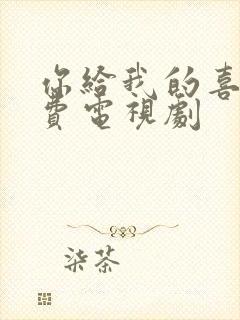 你給我的喜
費電視劇
柒茶